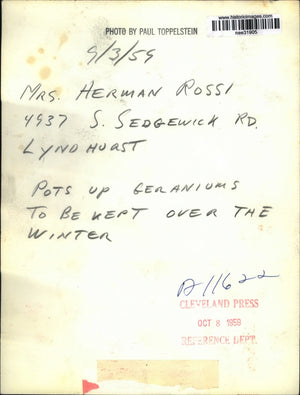 www.historicimages.com
nee31905
PHOTO BY PAUL TOPPELSTEIN
9/3/59
MRS. HERMAN ROSSI
4937 S. SEDGEWICK RD.
LYNDHURST
POTS UP GERANIUMS
TO BE KEPT OVER THE
WINTER
A11622
CLEVELAND PRESS
OCT 8 1959
REFERENCE DEPT.